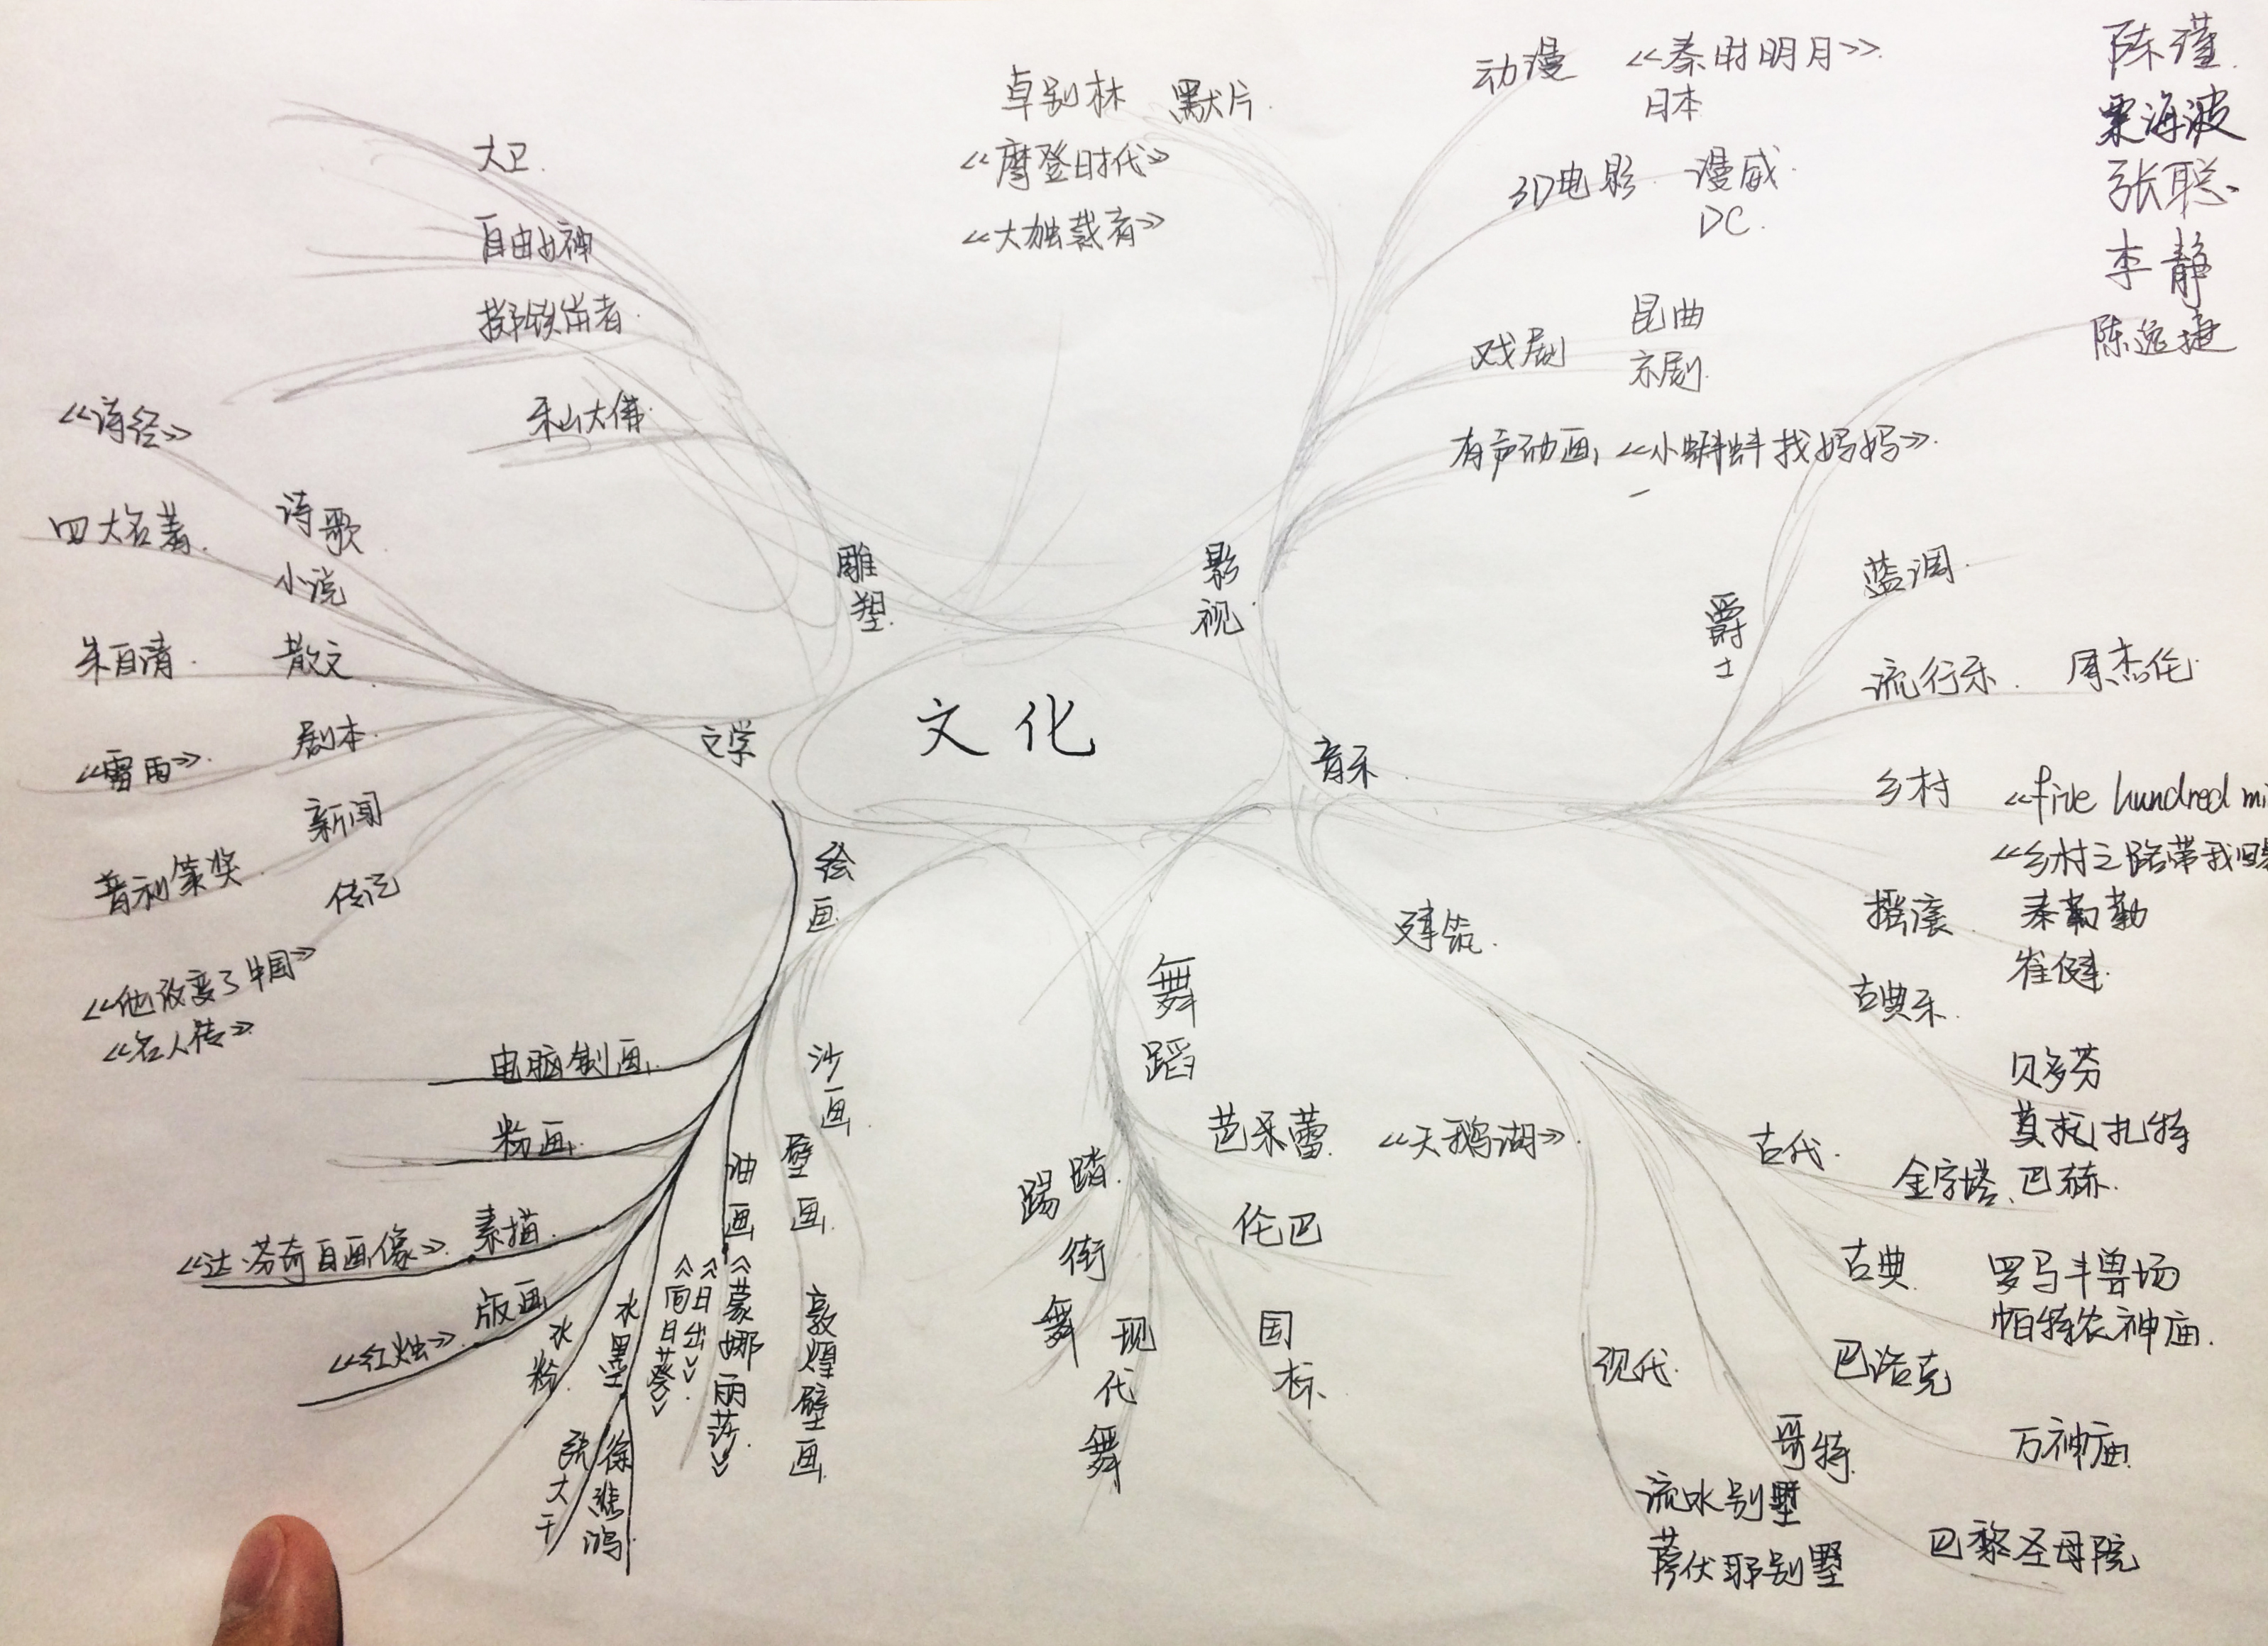 文化
雕塑
大卫
自由女神
掷铁饼者
乐山大佛
影视
卓别林 默片
《摩登时代》
《大独裁者》
动漫 《秦时明月》
日本
3D电影 漫威
DC
戏剧 昆曲
京剧
有声动画 《小蝌蚪找妈妈》
陈瑾
栗海波
张聪
李静
陈逸捷
音乐
爵士
蓝调
流行乐 周杰伦
乡村 《five hundred mi
《乡村之路带我回
摇滚 秦勒勤
崔健
古典乐
贝多芬
莫扎特
巴赫
建筑
古代 金字塔
古典 罗马斗兽场
帕特农神庙
巴洛克
万神庙
哥特
巴黎圣母院
现代
流水别墅
萨伏耶别墅
舞蹈
芭乐蕾 《天鹅湖》
伦巴
国标
现代舞
街舞
踢踏
绘画
沙画
壁画
敦煌壁画
油画
《蒙娜丽莎》
《日出》
《向日葵》
水墨
徐悲鸿
张大千
水粉
版画
《红烛》
素描
《达芬奇自画像》
粉画
电脑制画
文学
诗歌
《诗经》
小说
四大名著
散文
朱自清
剧本
《雷雨》
新闻
普利策奖
传记
《他改变了中国》
《名人传》